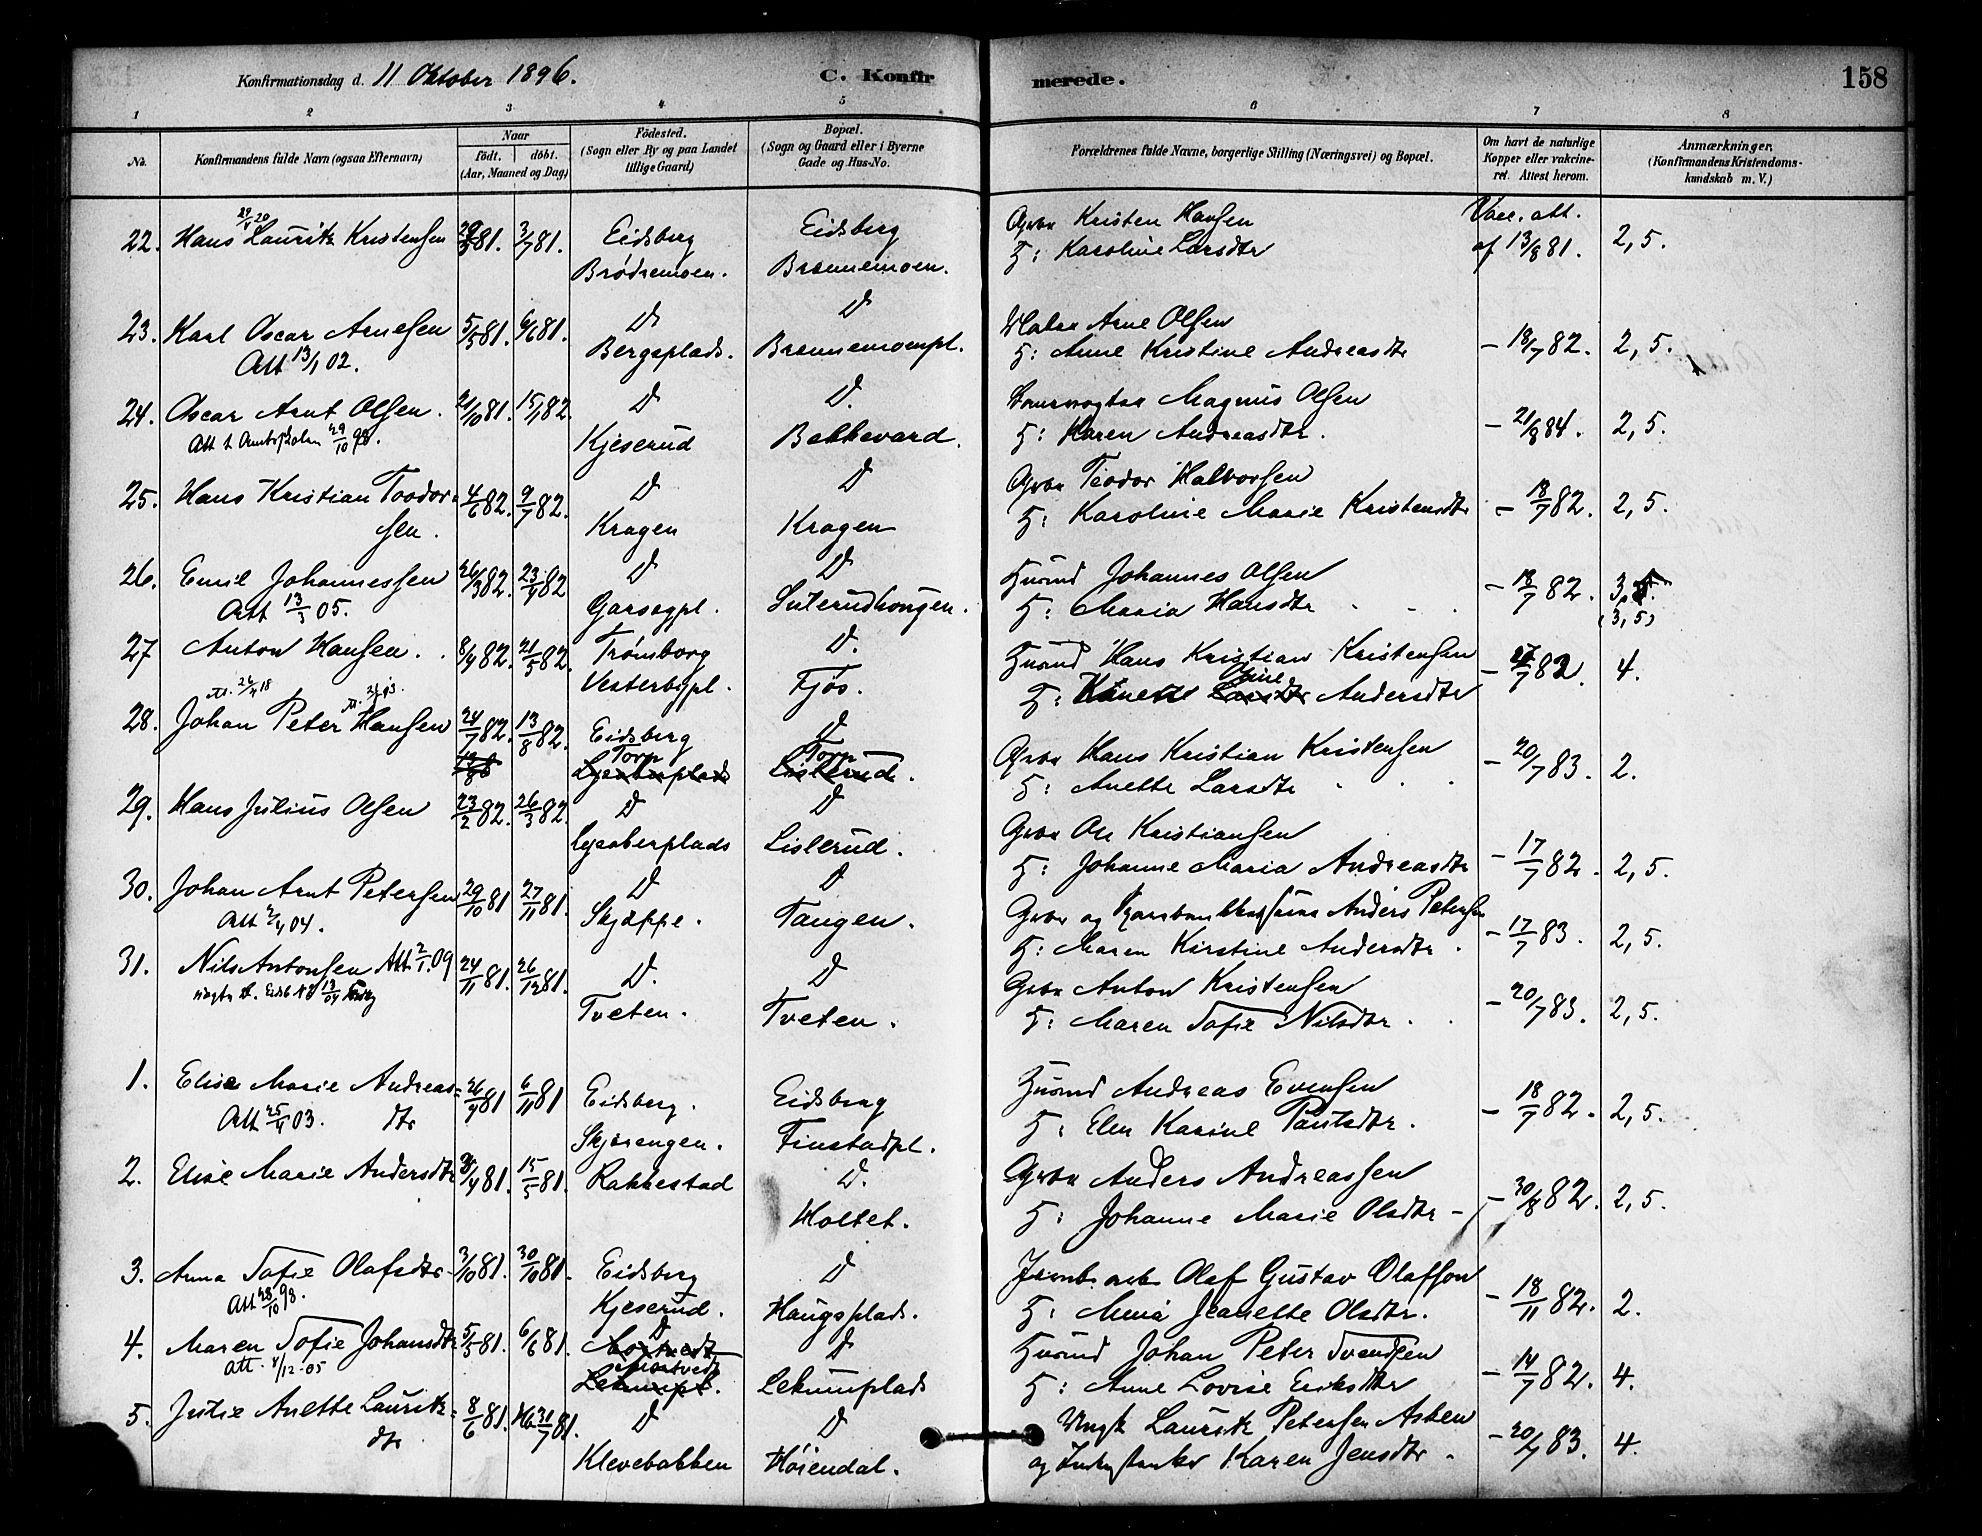 Konfirmationsdag d. 11 Oktober 1896. C. Konfirmerede. 158
1 2 3 4 5 6 7 8
No. Konfirmandens fulde Navn (ogsaa Efternavn) Naar födt. döbt. (Aar, Maaned og Dag) Födested. (Sogn eller By og paa Landet tillige Gaard) Bopæl. (Sogn og Gaard eller i Byerne Gade og Hus-No. Forældrenes fulde Navne, borgerlige Stilling (Næringsvei) og Bopæl. Om havt de naturlige Kopper eller vakcineret. Attest herom. Anmærkninger. (Konfirmandens Kristendomskundskab m. V.)
22. Hans Lauritz Kristensen 81. 3/7 81. Eidsberg Eidsberg Gbr Kristen Hansen Vacc. att.
Brödremoen. Brennemoen. H: Karoline Larsdtr af 13/8 81. 2, 5.
23. Karl Oscar Arnesen 5/5 81. 6/6 81. D D Arne Olsen
Att 13/1 02. Bergsplads. Brennemoenpl. H: Anne Kristine Andreasdtr - 18/7 82. 2, 5.
24. Oscar Arnt Olsen. 21/10 81. 15/1 82. D D. Magnus Olsen
Att t. Amtsskolen 29/10 98. Kjeserud Bakkevard. H: Karen Andreasdtr. - 21/8 84. 2, 5.
25. Hans Kristian Teodor- 4/6 82. 9/7 82. D D Gbr Teodor Halvorsen
sen. Kragen Kragen H: Karoline Marie Kristensdtr - 18/7 82. 2, 5.
26. Emil Johannessen 26/3 82. 23/4 82 D D Husmd Johannes Olsen
Att 13/3 05. Garsegpl. Suterudhougen. H: Maria Hansdtr - 18/7 82. 3,
(3,5)
27 Anton Hansen. 8/4 82. 21/5 82. Trömborg D. Husmd Hans Kristian Kristensen
Vesterbypl. Fjös. H: Andersdtr - 82. 4.
28. Johan Peter Hansen 24/7 82. 13/8 82. Eidsberg D Gbr Hans Kristian Kristensen
Torp Torp H: Anette Larsdtr - 20/7 83. 2.
29. Hans Julius Olsen 23/2 82. 26/3 82. D D Gbr Ole Kristiansen
Lysaberplads Lislerud. H: Johanne Maria Andreasdtr - 17/7 82. 2, 5.
30. Johan Arnt Petersen 29/10 81 27/11 81. D D Gbr og Anders Petersen
Att 04. Skjæppe. Tangen. H: Maren Kirstine Andersdtr. - 17/7 83. 2, 5.
31. Nils Antonsen Att 2/1. 09 24/11 81. 26/12 81. D. D Gbr Anton Kristensen
Tveten. Tveten. H: Maren Sofie Nilsdtr. - 20/7 83. 2, 5.
1. Elise Marie Andreas- 26/9 81 6/11 81 Eidsberg. Eidsberg Husmd Andreas Evensen
Att 25/4 03. dtr Skjörengen. Finstadpl. H: Elen Karine Paulsdtr. - 18/7 82. 2, 5.
2. Elise Marie Andersdtr 81. 15/5 81. Rakkestad D. Gbr Anders Andreassen
Holtet. H: Johanne Marie Olsdtr - - 30/8 82. 2, 5.
3. Anna Sofie Olafsdtr. 3/10 81. 30/10 81. Eidsberg D Jernb. arb Olaf Gustav Olafson
Att 28/10 98. Kjeserud. Haugsplads. H: Jeanette Olsdtr. - 18/11 82. 2.
4. Maren Sofie Johansdtr 5/5 81. 6/6 81. D D Husmd Johan Peter Svendsen
Att. 4/12-05 Mortvedt Lekumplads H: Anne Lovise Eriksdtr - 14/7 82. 4.
5. Julie Anette Lauritz- 8/6 81. 31/7 81. D D Ungk Lauritz Petersen Asken
dtr Klevebakken Höiendal. og Karen Jensdtr. - 20/7 83. 4.